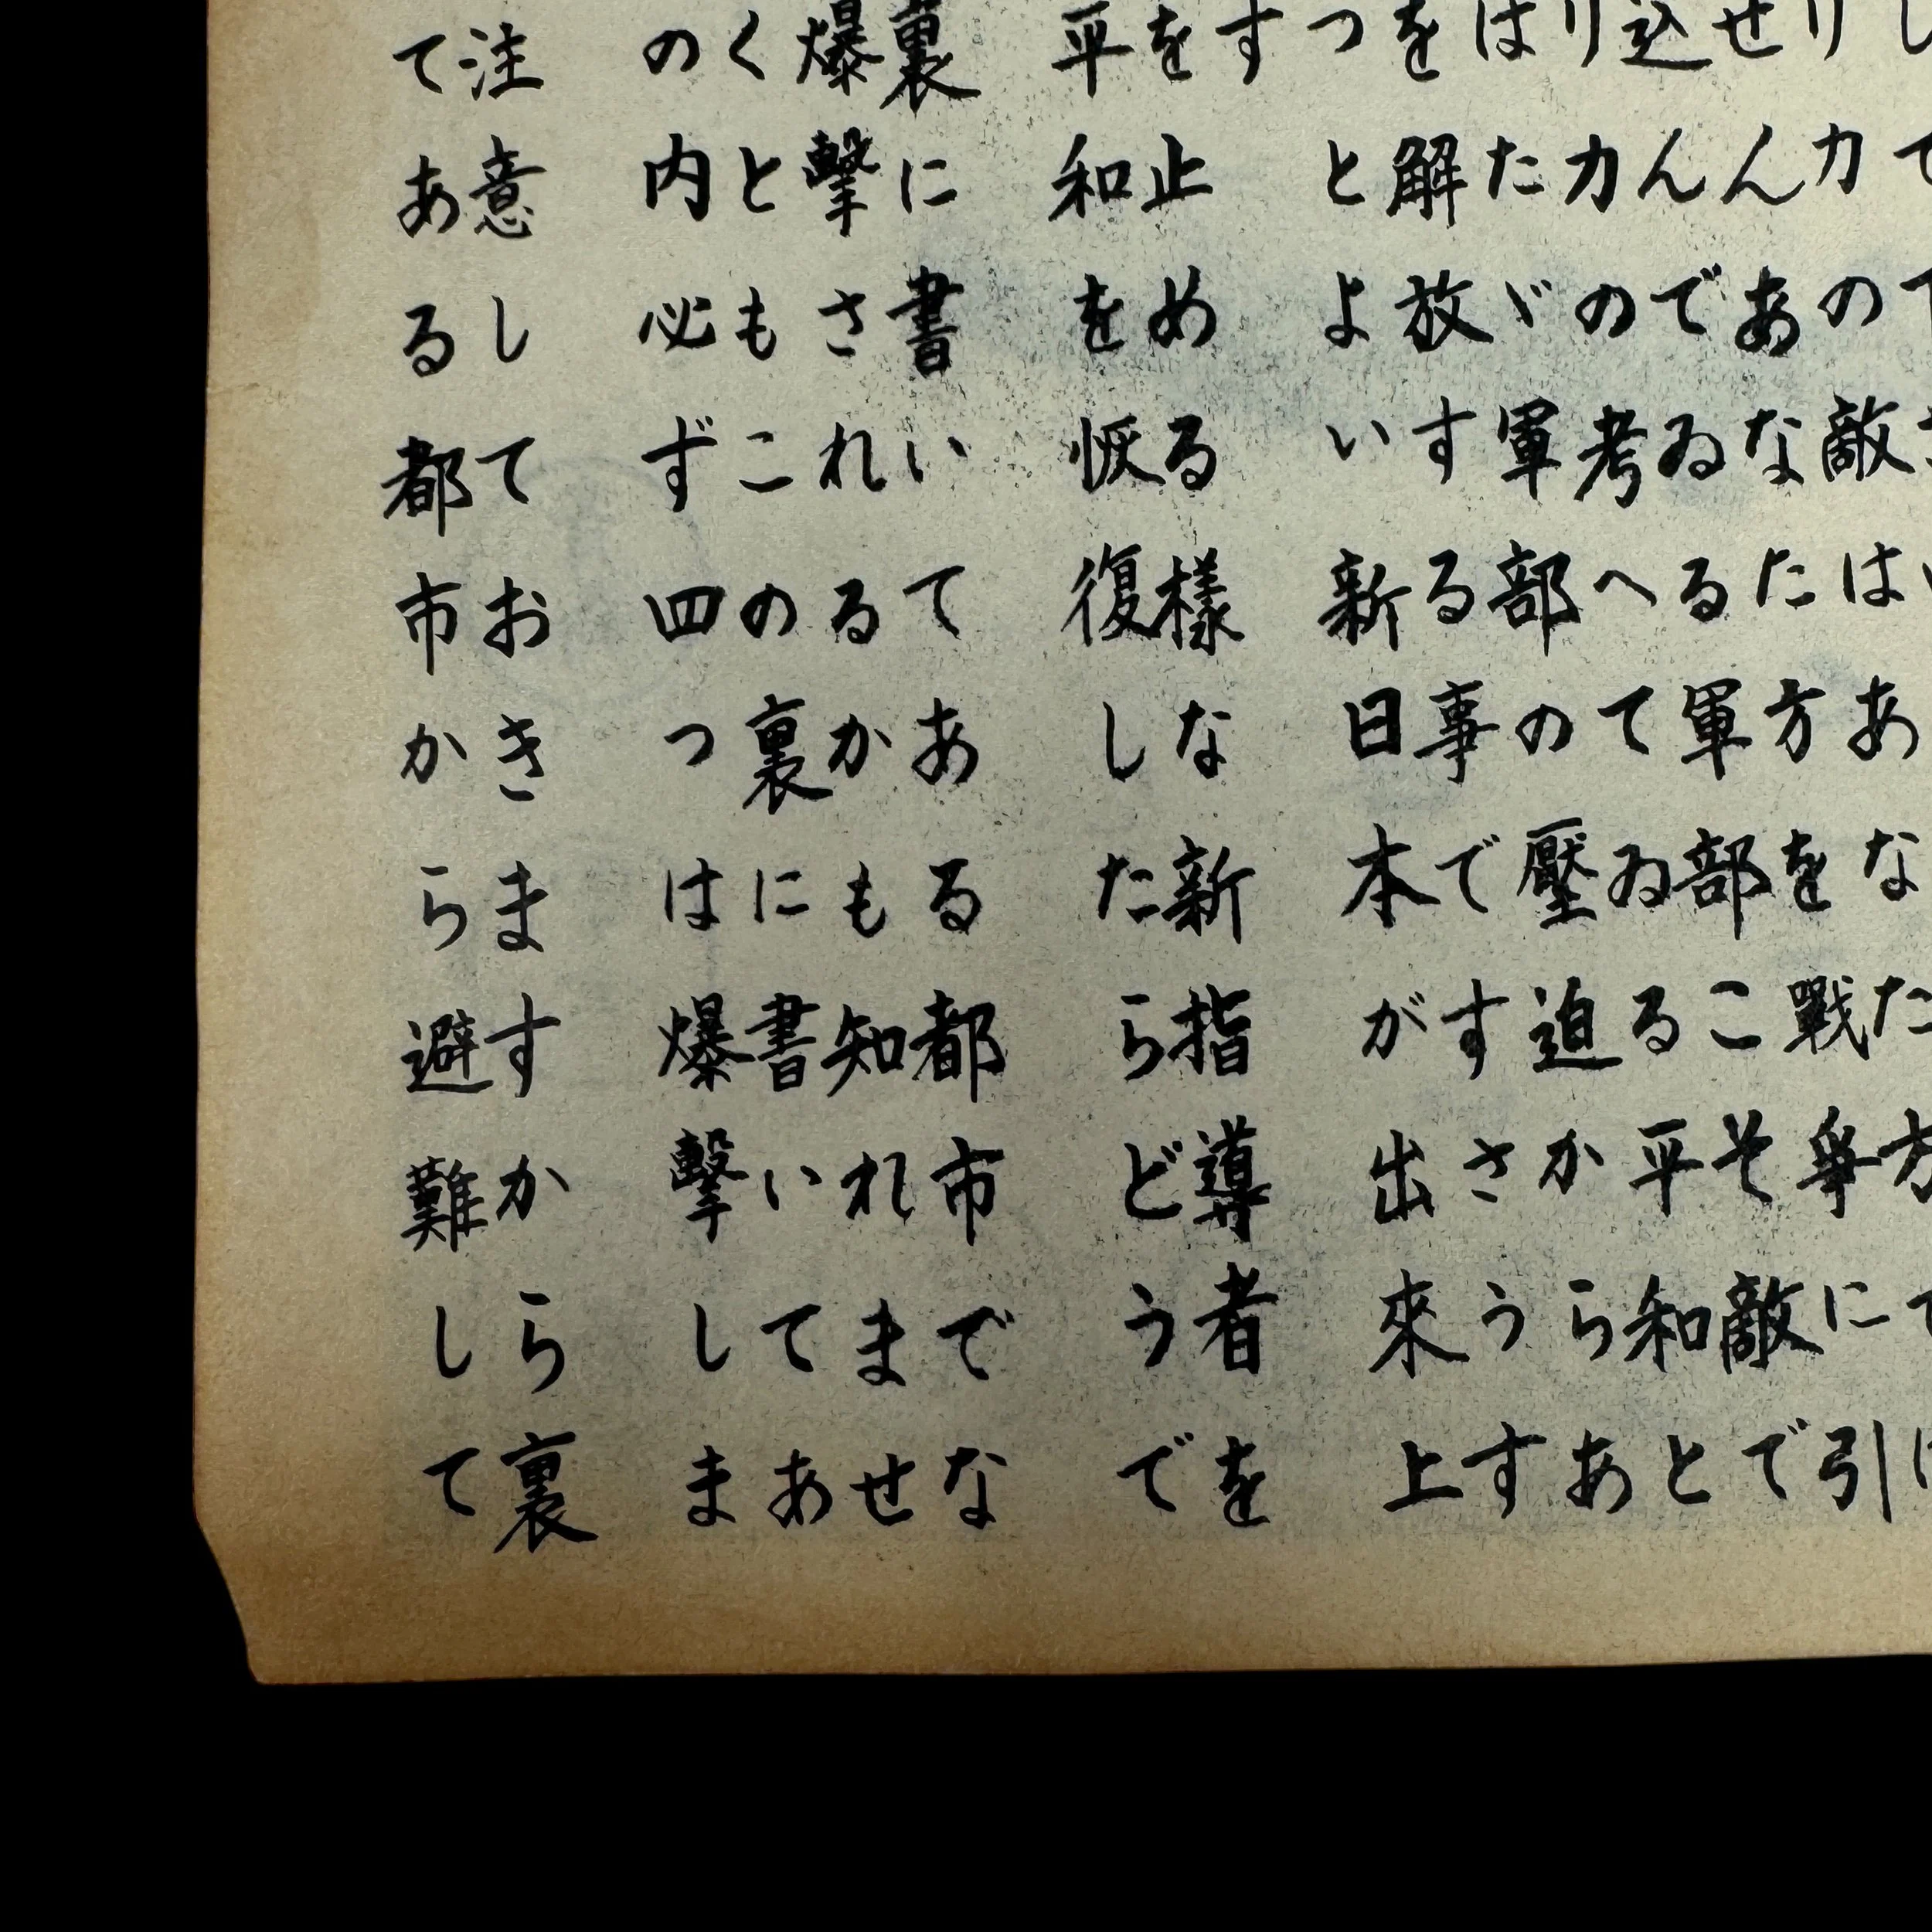 り力の敵はあなた方では
せんあなた方を戰爭に引
込んでゐる軍部こそ敵で
り力の考へてゐる平和と
はたゞ軍部の壓迫からあ
を解放する事でさうす
つとよい新日本が出來上
す
を止める樣な新指導者を
平和を恢復したらどうで
裏に書いてある都市でな
爆擊されるかも知れませ
くともこの裏に書いてあ
の内必ず四つは爆擊しま
注意しておきますから裏
てある都市から避難して